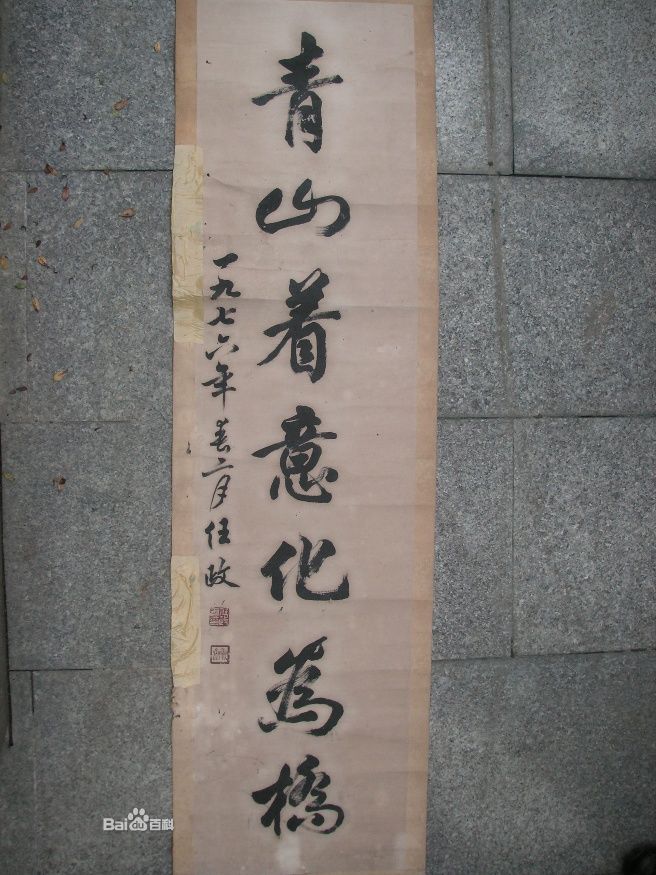 青山着意化為橋
一九七六年春二月任政
Baidu百科